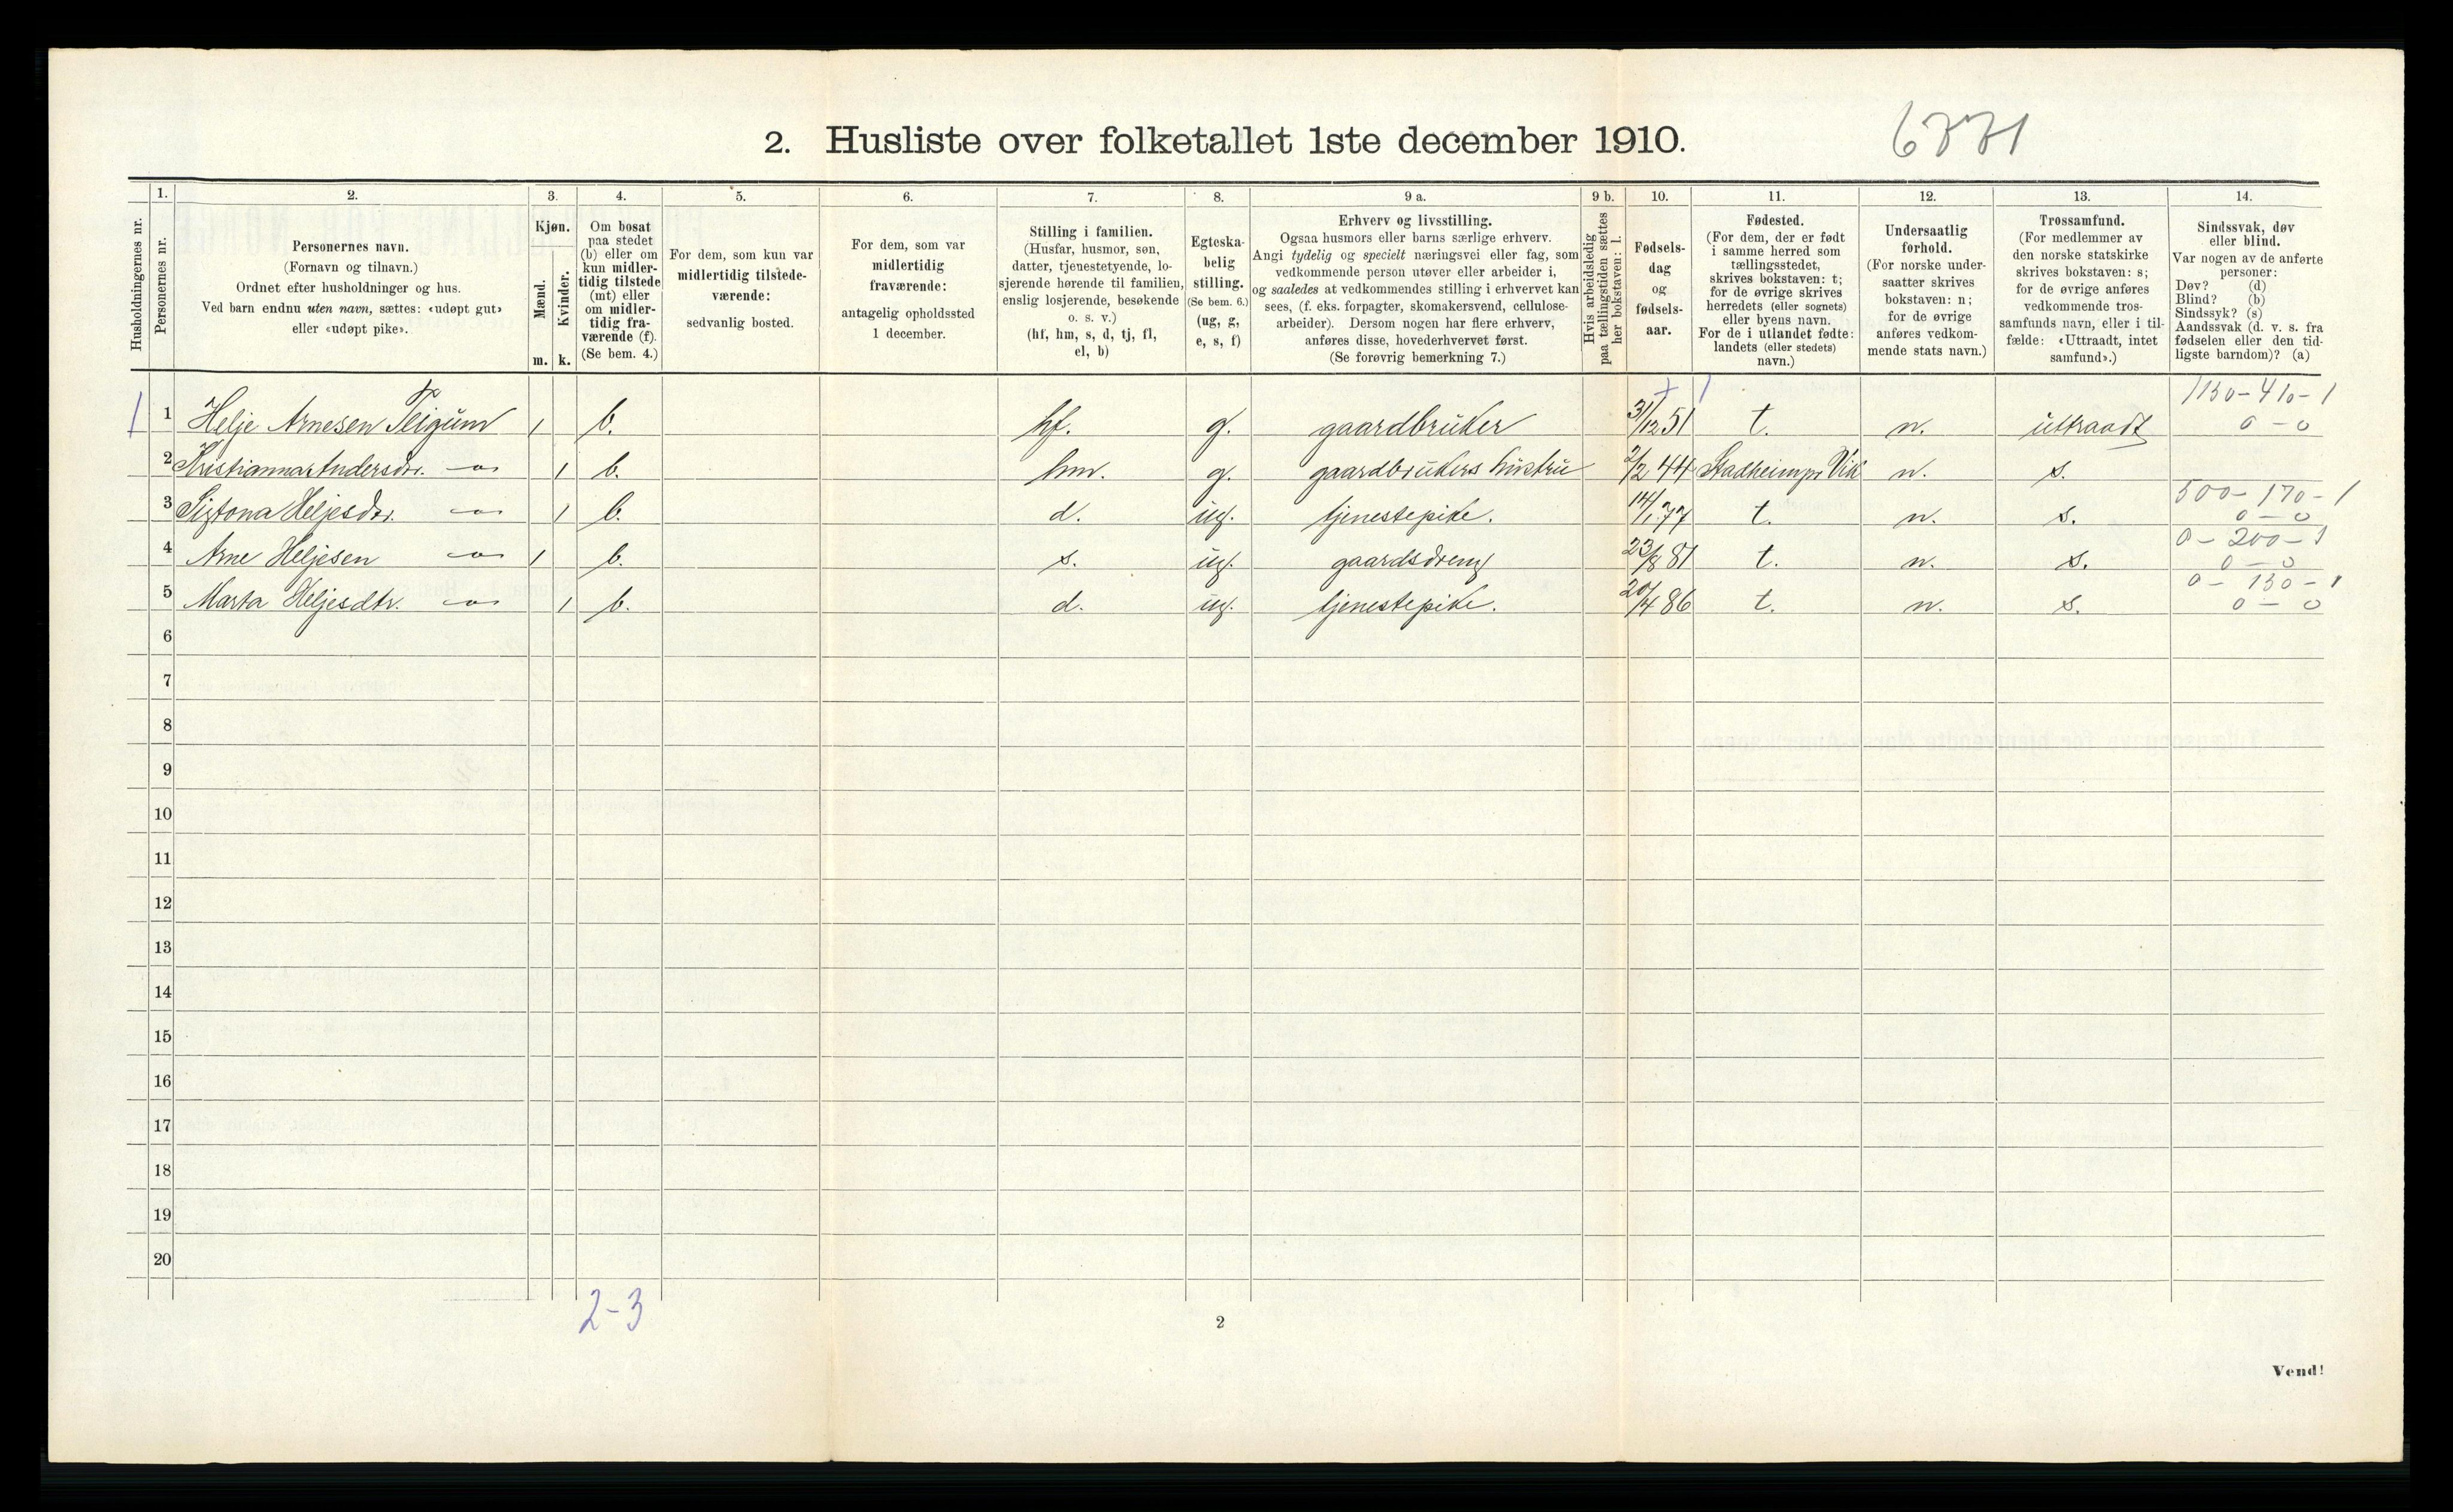 2. Husliste over folketallet 1ste december 1910.
6771
1. 2. 3. 4. 5. 6. 7. 8. 9 a. 9 b. 10. 11. 12. 13. 14.
Husholdningernes nr.
Personernes nr.
Personernes navn.
(Fornavn og tilnavn.)
Ordnet efter husholdninger og hus.
Ved barn endnu uten navn, sættes: «udøpt gut»
eller «udøpt pike».
Kjøn.
Mænd.
Kvinder.
m. k.
Om bosat
paa stedet
(b) eller om
kun midler-
tidig tilstede
(mt) eller
om midler-
tidig fra-
værende (f).
(Se bem. 4.)
For dem, som kun var
midlertidig tilstede-
værende:
sedvanlig bosted.
For dem, som var
midlertidig
fraværende:
antagelig opholdssted
1 december.
Stilling i familien.
(Husfar, husmor, søn,
datter, tjenestetyende, lo-
sjerende hørende til familien,
enslig losjerende, besøkende
o. s. v.)
(hf, hm, s, d, tj, fl,
el, b)
Egteska-
belig
stilling.
(Se bem. 6.)
(ug, g,
e, s, f)
Erhverv og livsstilling.
Ogsaa husmors eller barns særlige erhverv.
Angi tydelig og specielt næringsvei eller fag, som
vedkommende person utøver eller arbeider i,
og saaledes at vedkommendes stilling i erhvervet kan
sees, (f. eks. forpagter, skomakersvend, cellulose-
arbeider). Dersom nogen har flere erhverv,
anføres disse, hovederhvervet først.
(Se forøvrig bemerkning 7.)
Hvis arbeidsledig
paa tællingstiden sættes
her bokstaven: l.
Fødsels-
dag
og
fødsels-
aar.
Fødested.
(For dem, der er født
i samme herred som
tællingsstedet,
skrives bokstaven: t;
for de øvrige skrives
herredets (eller sognets)
eller byens navn.
For de i utlandet fødte:
landets (eller stedets)
navn.)
Undersaatlig
forhold.
(For norske under-
saatter skrives
bokstaven: n;
for de øvrige
anføres vedkom-
mende stats navn.)
Trossamfund.
(For medlemmer av
den norske statskirke
skrives bokstaven: s;
for de øvrige anføres
vedkommende tros-
samfunds navn, eller i til-
fælde: «Uttraadt, intet
samfund».)
Sindssvak, døv
eller blind.
Var nogen av de anførte
personer:
Døv? (d)
Blind? (b)
Sindssyk? (s)
Aandssvak (d. v. s. fra
fødselen eller den tid-
ligste barndom)? (a)
1130-410-1
1 1 Helje Arnesen Teigum 1 b. hf. g. gaardbruker 31/12 51 t. n. uttraadt 0-0
2 Kristianna Andersdtr. -"- 1 b. hm. g. gaardbrukers hustru 2/2 44 Stadheim pr Vik n. s.
500-170-1
3 Heljesdtr. -"- 1 b. d. ug. tjenestepike. 14/1 77 t. n. s. 0-0
0-200-1
4 Arne Heljesen -"- 1 b. s. ug. gaardsdreng 23/8 81 t. n. s. 0-0
0-130-1
5 Marta Heljesdtr. -"- 1 b. d. ug. tjenestepike. 20/4 86 t. n. s. 0-0
6
7
8
9
10
11
12
13
14
15
16
17
18
19
20
2-3
2
Vend!